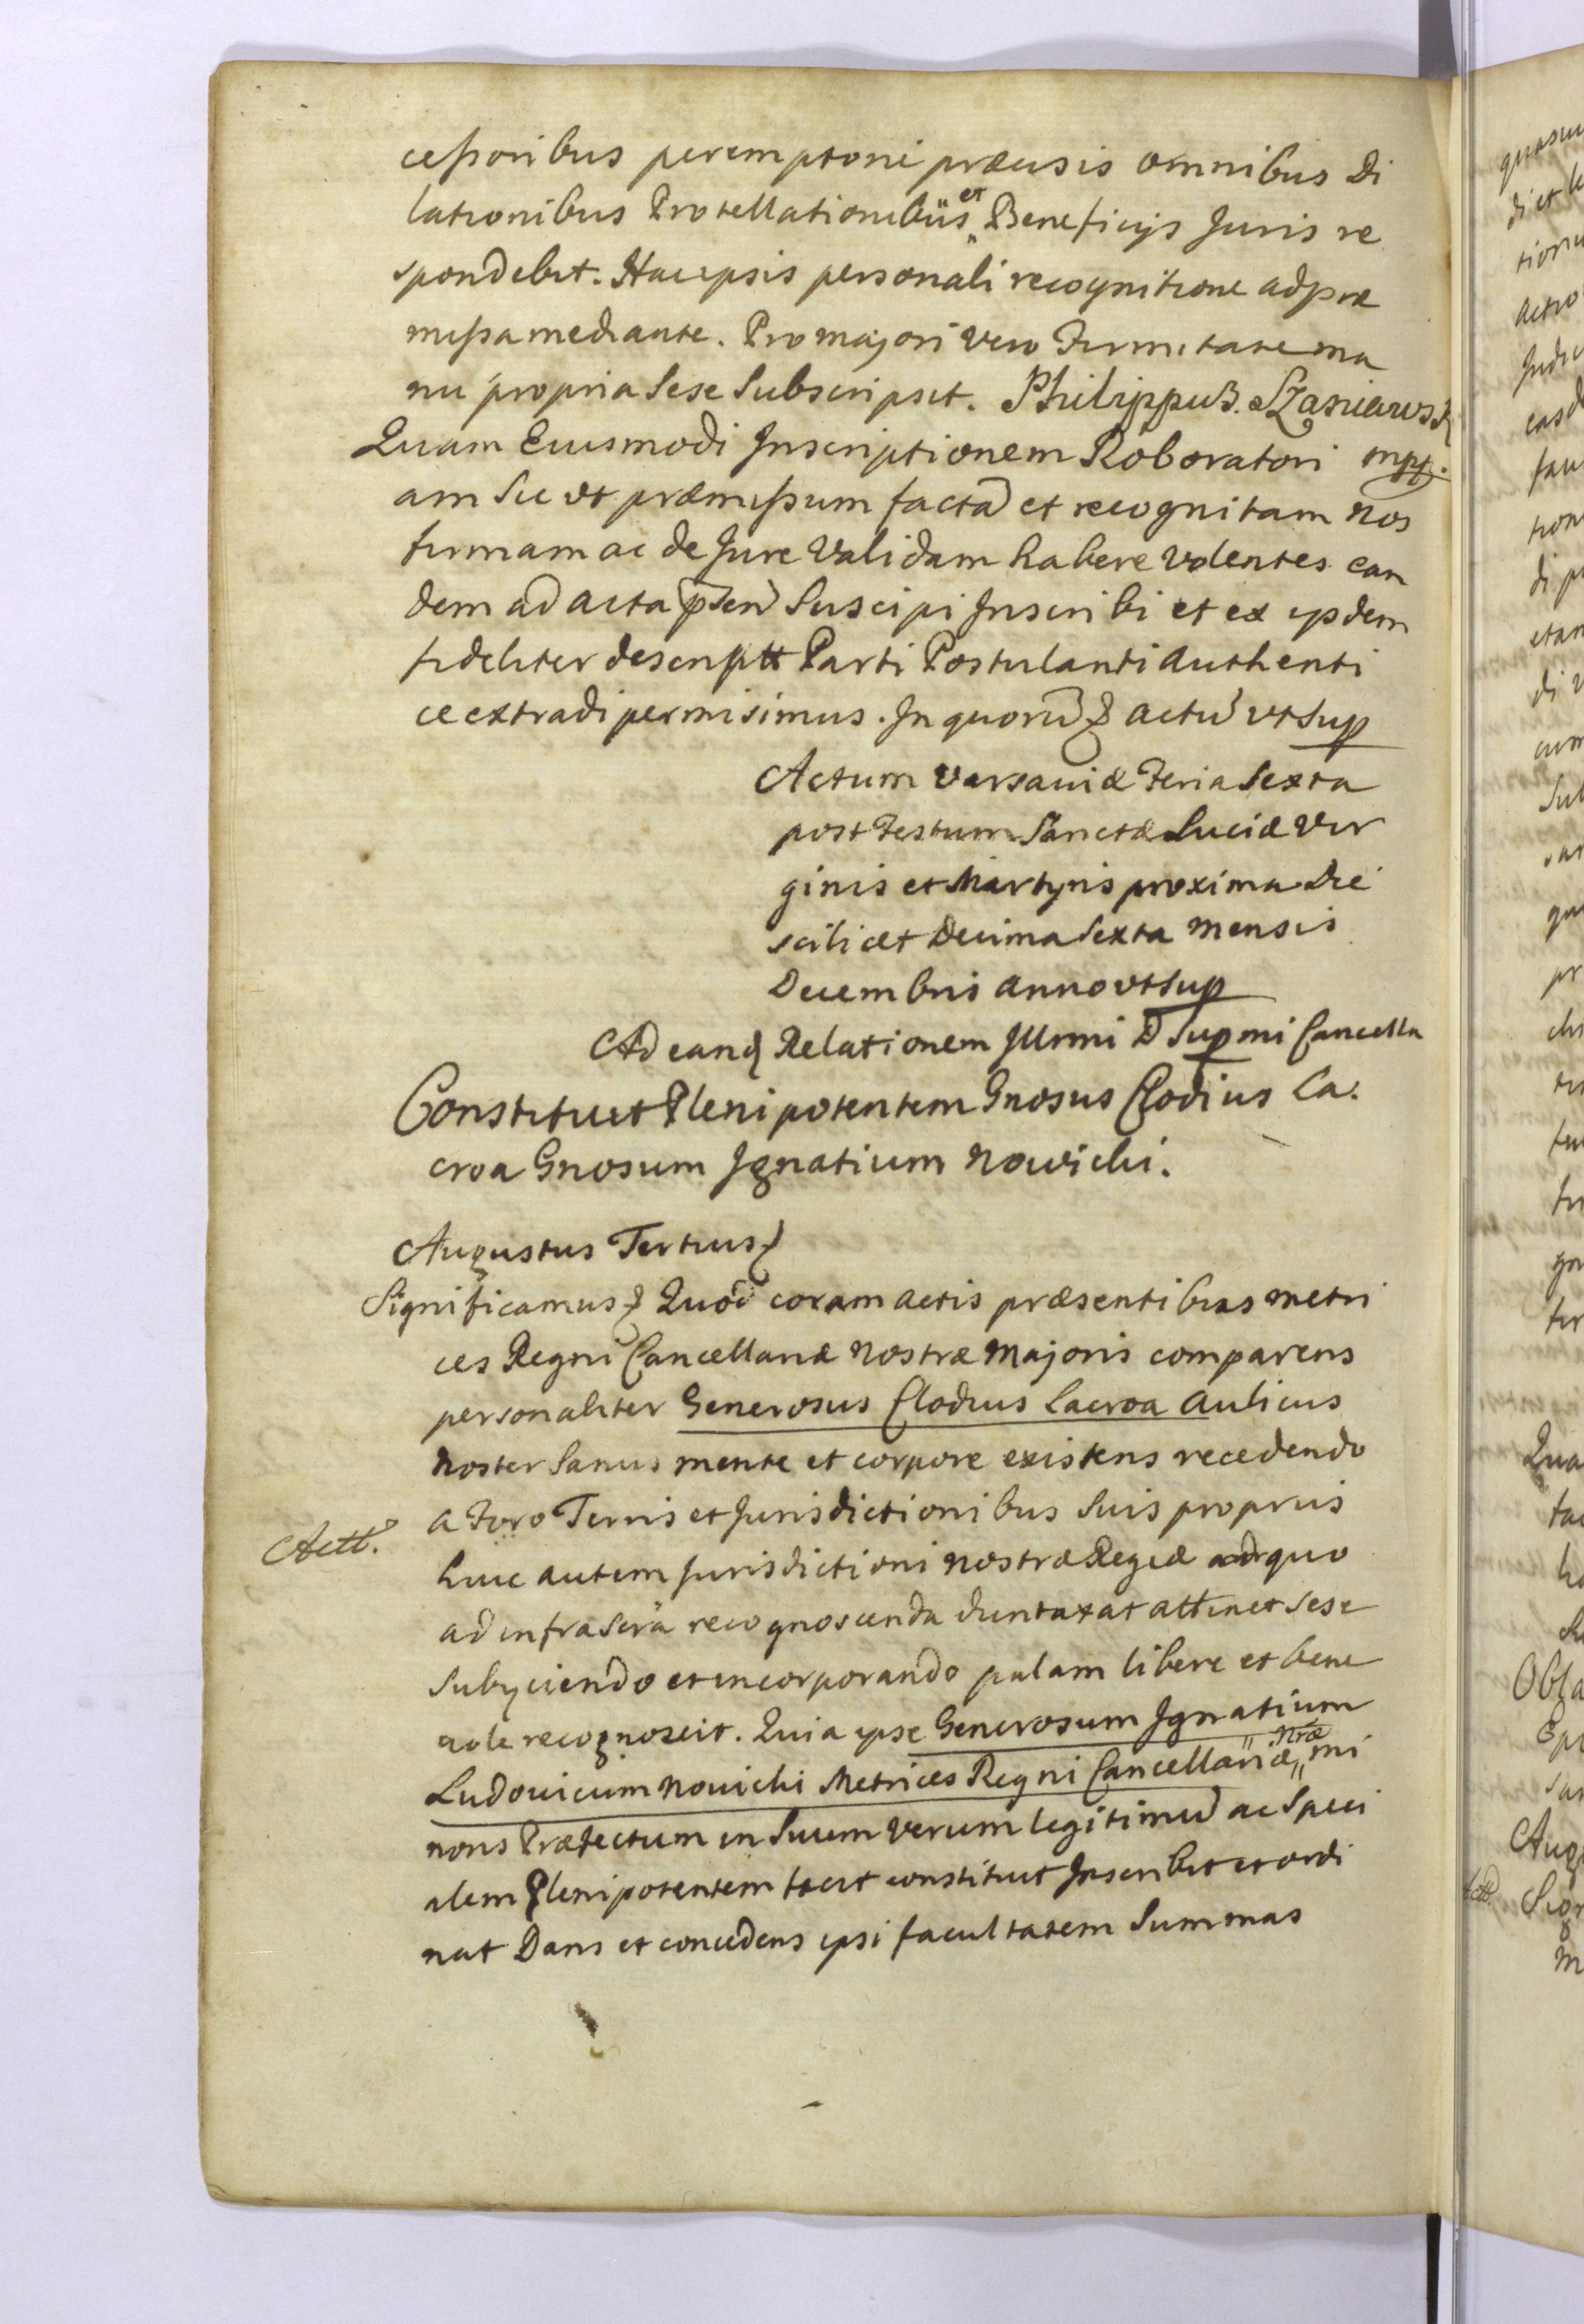 cessoribus peremptorie præcisis omnibus Di
lationibus Protellationibus et Beneficijs Juris re
spondebit. Hac ipsis personali recognitione ad præ
missa mediante. Pro majori vero Firmitate ma
nu propria Sese Subscripsit. Philippus Szaniawski
Quam Eiusmodi Inscriptionem Roboratori mpp.
am Sic vt præmissum factã et recognitam nos
firmam ac de Jure Validam habere volentes ean
dem ad acta pñsen Suscipi Inscribi et ex ijsdem
fideliter descriptt Parti Postulanti Authenti
ce extradi permisimus. In quorũ & actũ vt Sup
Actum Varsaviæ Feria Sexta
post Festum Sanctæ Luciæ Vir
ginis et Martyris proxima Die
scilicet Decima Sexta Mensis
Decembris anno vt Sup
Ad eand Relationem Illrmi D Supmi Cancella
Constituit Plenipotentem Gnosus Clodius La.
croa Gnosum Ignatium Nowicki.
Augustus Tertius &
Significamus & Quod coram actis præsentibus metri
ces Regni Cancellariæ Nostræ Majoris comparens
personaliter Generosus Clodius Lacroa Aulicus
Noster Sanus mente et corpore existens recedendo
a Foro Terris et Jurisdictionibus Suis proprijs
Actt.
huic autem Jurisdictioni Nostræ Regiæ quo
ad infra Scra recognoscenda duntaxat attinet Sese
Subijciendo et incorporando palam libere et bene
vole recognoscit. Quia ipse Generosum Ignatium
Ludovicum Nowicki Metrices Regni Cancellariæ Nræ mi
noris Præfectum in Suum verum legitimũ ac Speci
alem Plenipotentem facit constituit Inscribit et ordi
nat Dans et concedens ipsi facultatem Summas